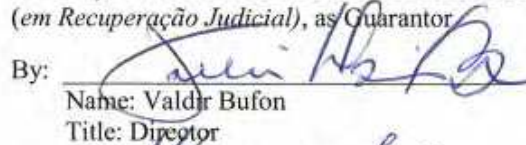 (em Recuperação Judicial), as Guarantor
By:
Name: Valdir Bufon
Title: Director